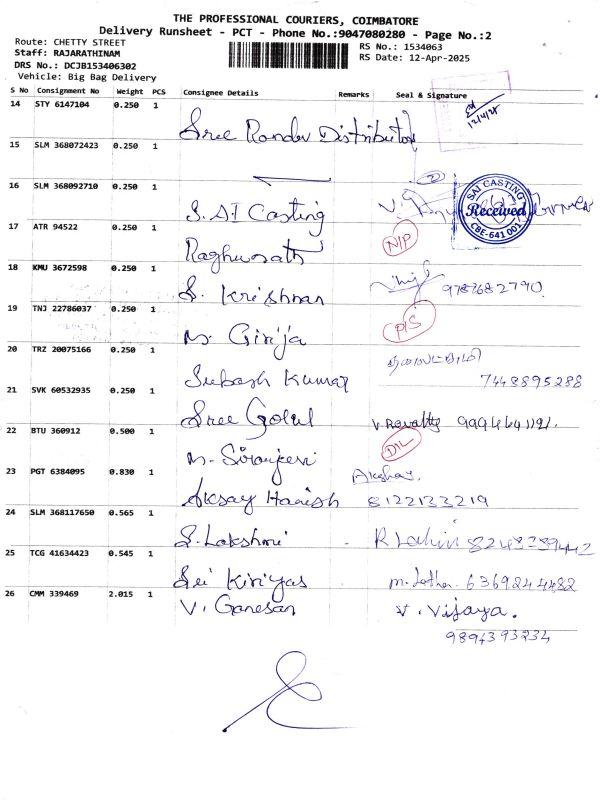 THE PROFESSIONAL COURIERS, COIMBATORE
Delivery Runsheet - PCT - Phone No.:9047080280 - Page No.:2
Route: CHETTY STREET
RS No.: 1534063
Staff: RAJARATHINAM
RS Date: 12-Apr-2025
DRS No.: DCJB153406302
Vehicle: Big Bag Delivery
S No Consignment No Weight PCS Consignee Details Remarks Seal & Signature
14 STY 6147104 0.250 1 Sree Randev Distributor
12/4/25
15 SLM 368072423 0.250 1
16 SLM 368092710 0.250 1 S. AI Casting
SAI CASTING Received CBE-641 001
17 ATR 94522 0.250 1 Raghunath N/P
18 KMU 3672598 0.250 1 S. Krishnan 9787682790
19 TNJ 22786037 0.250 1 M. Girija P/S
20 TRZ 20075166 0.250 1 Subash Kumar
7448895288
21 SVK 60532935 0.250 1 Sree Gokul V. Revathy
22 BTU 360912 0.500 1 M. Siranjeevi D/L
23 PGT 6384095 0.830 1 Aksay Harish Akshay. 8122133219
24 SLM 368117650 0.565 1 S. Lakshmi
25 TCG 41634423 0.545 1 Sri Kiriyas 6369244482
26 CMM 339469 2.015 1 V. Ganesan V. Vijaya.
9894393234